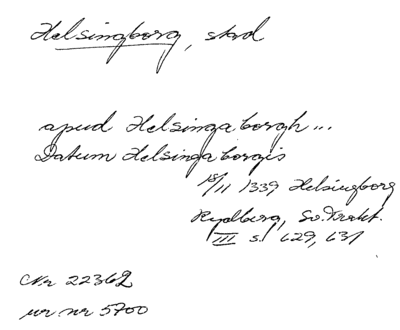 Helsingborg, stad
apud Helsingaborgh...
Datum Helsingaborgis
18/11 1339 Helsingborg
Rydberg, Sv. Trakt.
III s. 629, 631
Nr 22362
ur nr 5700